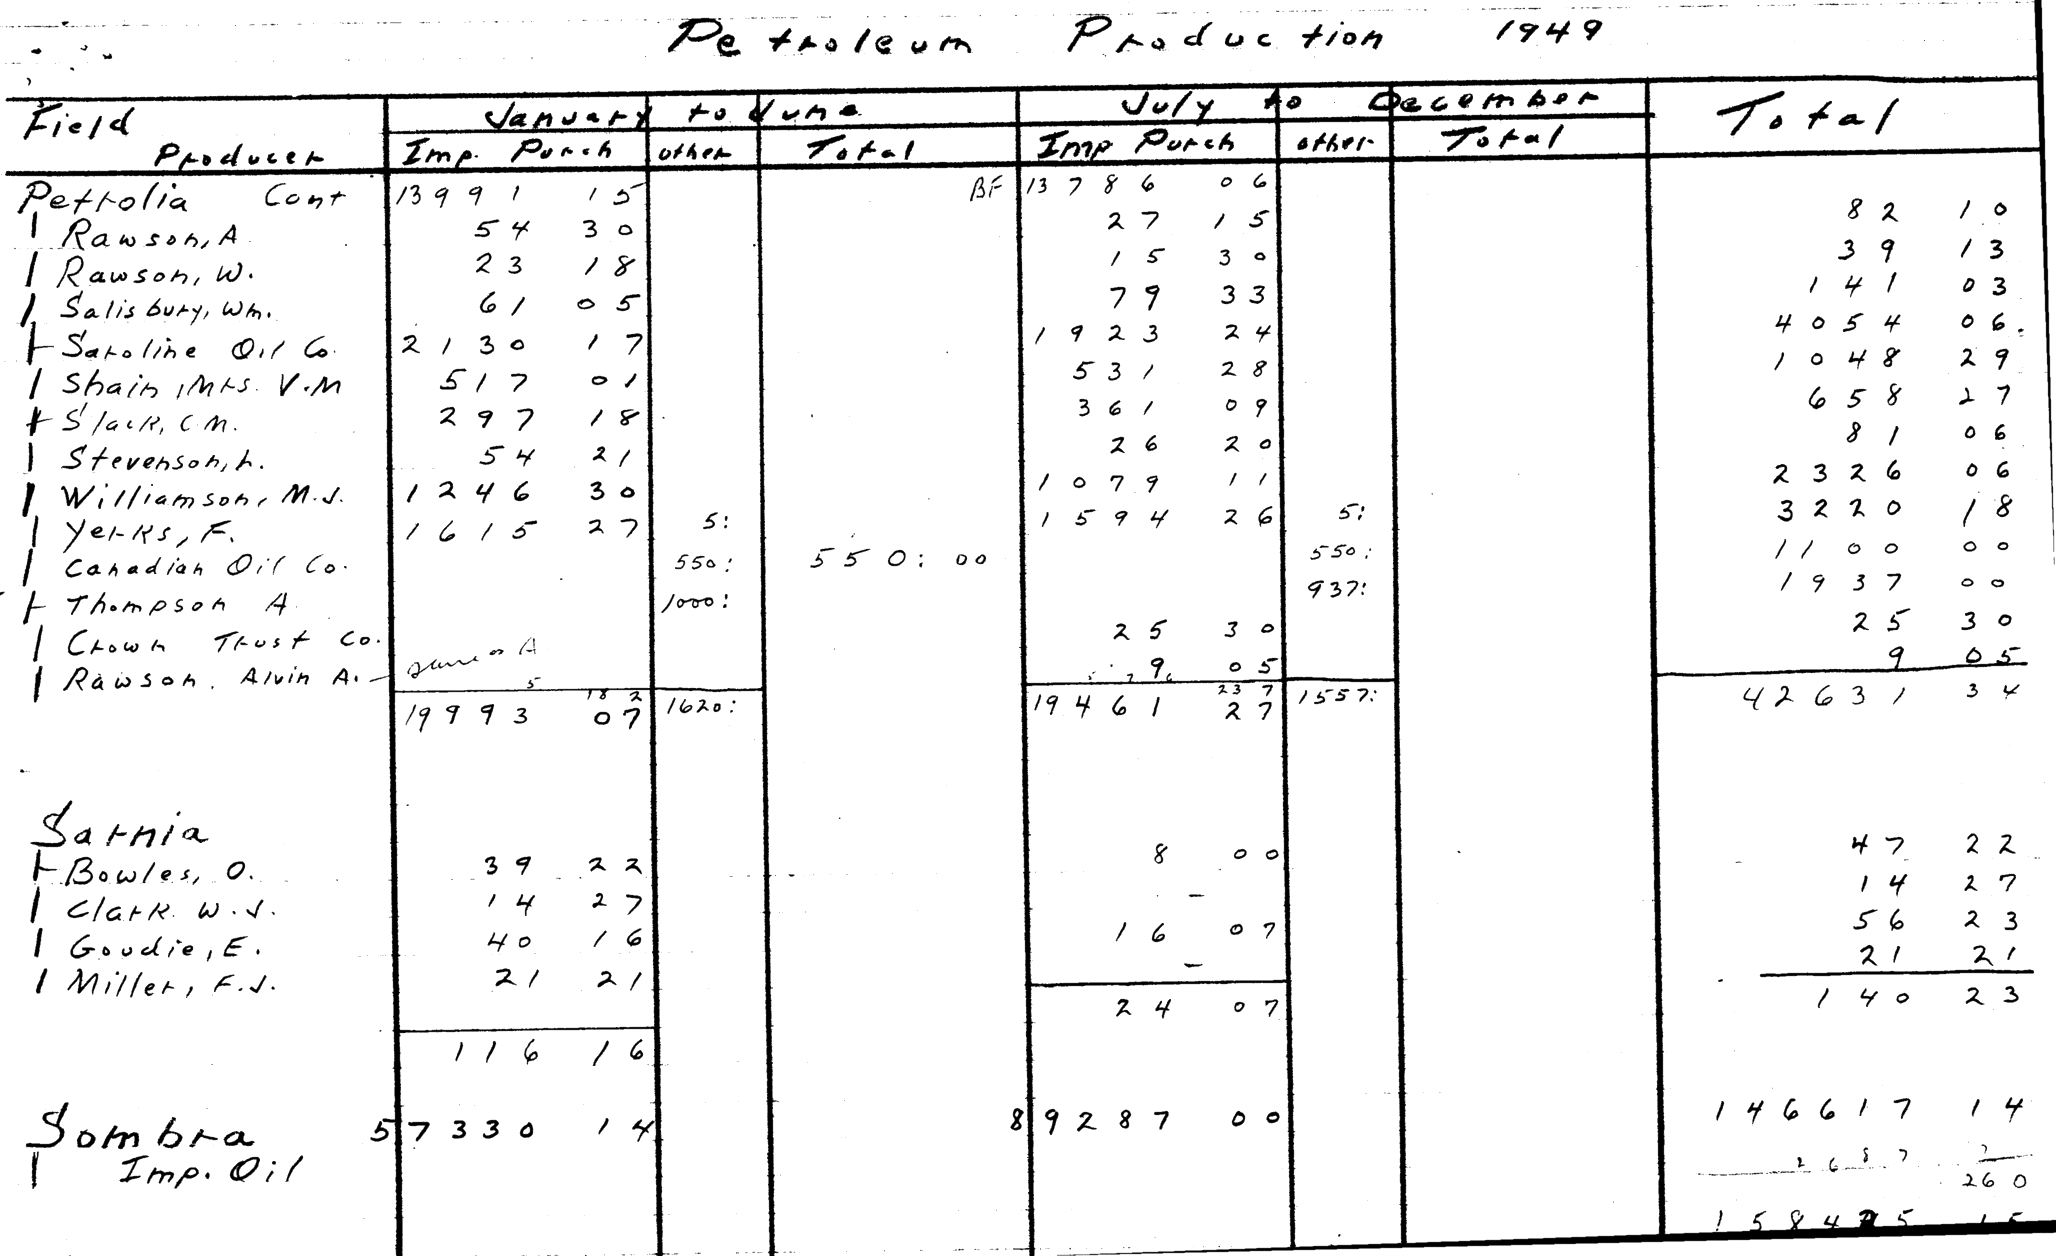 Petroleum Production 1949
Field January to June July to December Total
Producer Imp. Purch other Total Imp Purch other Total
Petrolia Cont 13991 15 BF 13786 06
Rawson, A 54 30 27 15 82 10
Rawson, W. 23 18 15 30 39 13
Salisbury, Wm. 61 05 79 33 141 03
Saroline Oil Co. 2130 17 1923 24 4054 06.
Shain, Mrs. V.M 517 01 531 28 1048 29
Slack, C.M. 297 18 361 09 658 27
Stevenson, L. 54 21 26 20 81 06
Williamson, M.J. 1246 30 1079 11 2326 06
Yerks, F. 1615 27 5: 1594 26 5: 3220 18
Canadian Oil Co. 550: 550:00 550: 1100 00
Thompson A 1000: 937: 1937 00
Crown Trust Co. 25 30 25 30
Rawson. Alvin A. - same as A 9 05 9 05
5 18 2 23 7
19993 07 1620: 19461 27 1557: 42631 34
Sarnia
Bowles, O. 39 22 8 00 47 22
Clark W.J. 14 27 - 14 27
Goudie, E. 40 16 16 07 56 23
Miller, F.J. 21 21 - 21 21
24 07 140 23
116 16
Sombra 57330 14 89287 00 146617 14
Imp. Oil 2687 7
260